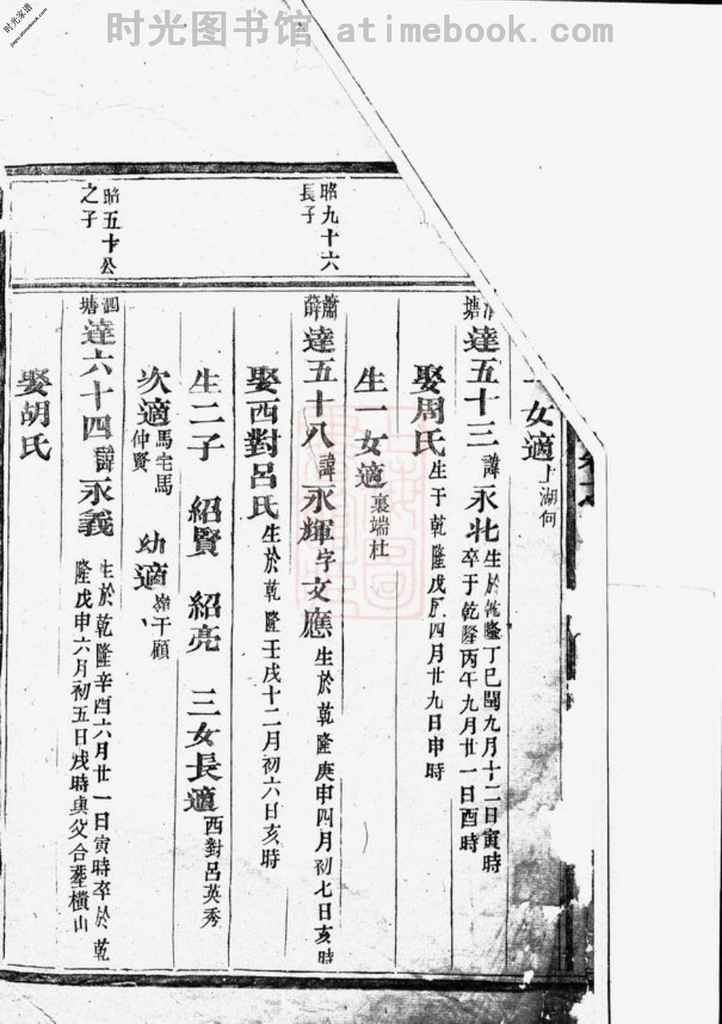 时光图书馆 atimebook.com
时光家谱
一女適上湖何
塘達五十三諱永壯生於乾隆丁巳閏九月十二日寅時
卒于乾隆丙午九月廿一日酉時
娶周氏生于乾隆戊辰四月廿九日申時
生一女適裏端杜
昭九十六
長子
蕭薛達五十八諱永輝字文應生於乾隆庚申四月初七日亥時
娶西對呂氏生於乾隆壬戌十二月初六日亥時
生二子 紹賢 紹亮 三女長適西對呂英秀
次適馬宅馬仲賢 幼適嶺干顧
昭五十公
之子
泗塘達六十四諱永義生於乾隆辛酉六月廿一日寅時卒於乾
隆戊申六月初五日戌時與父合塟橫山
娶胡氏